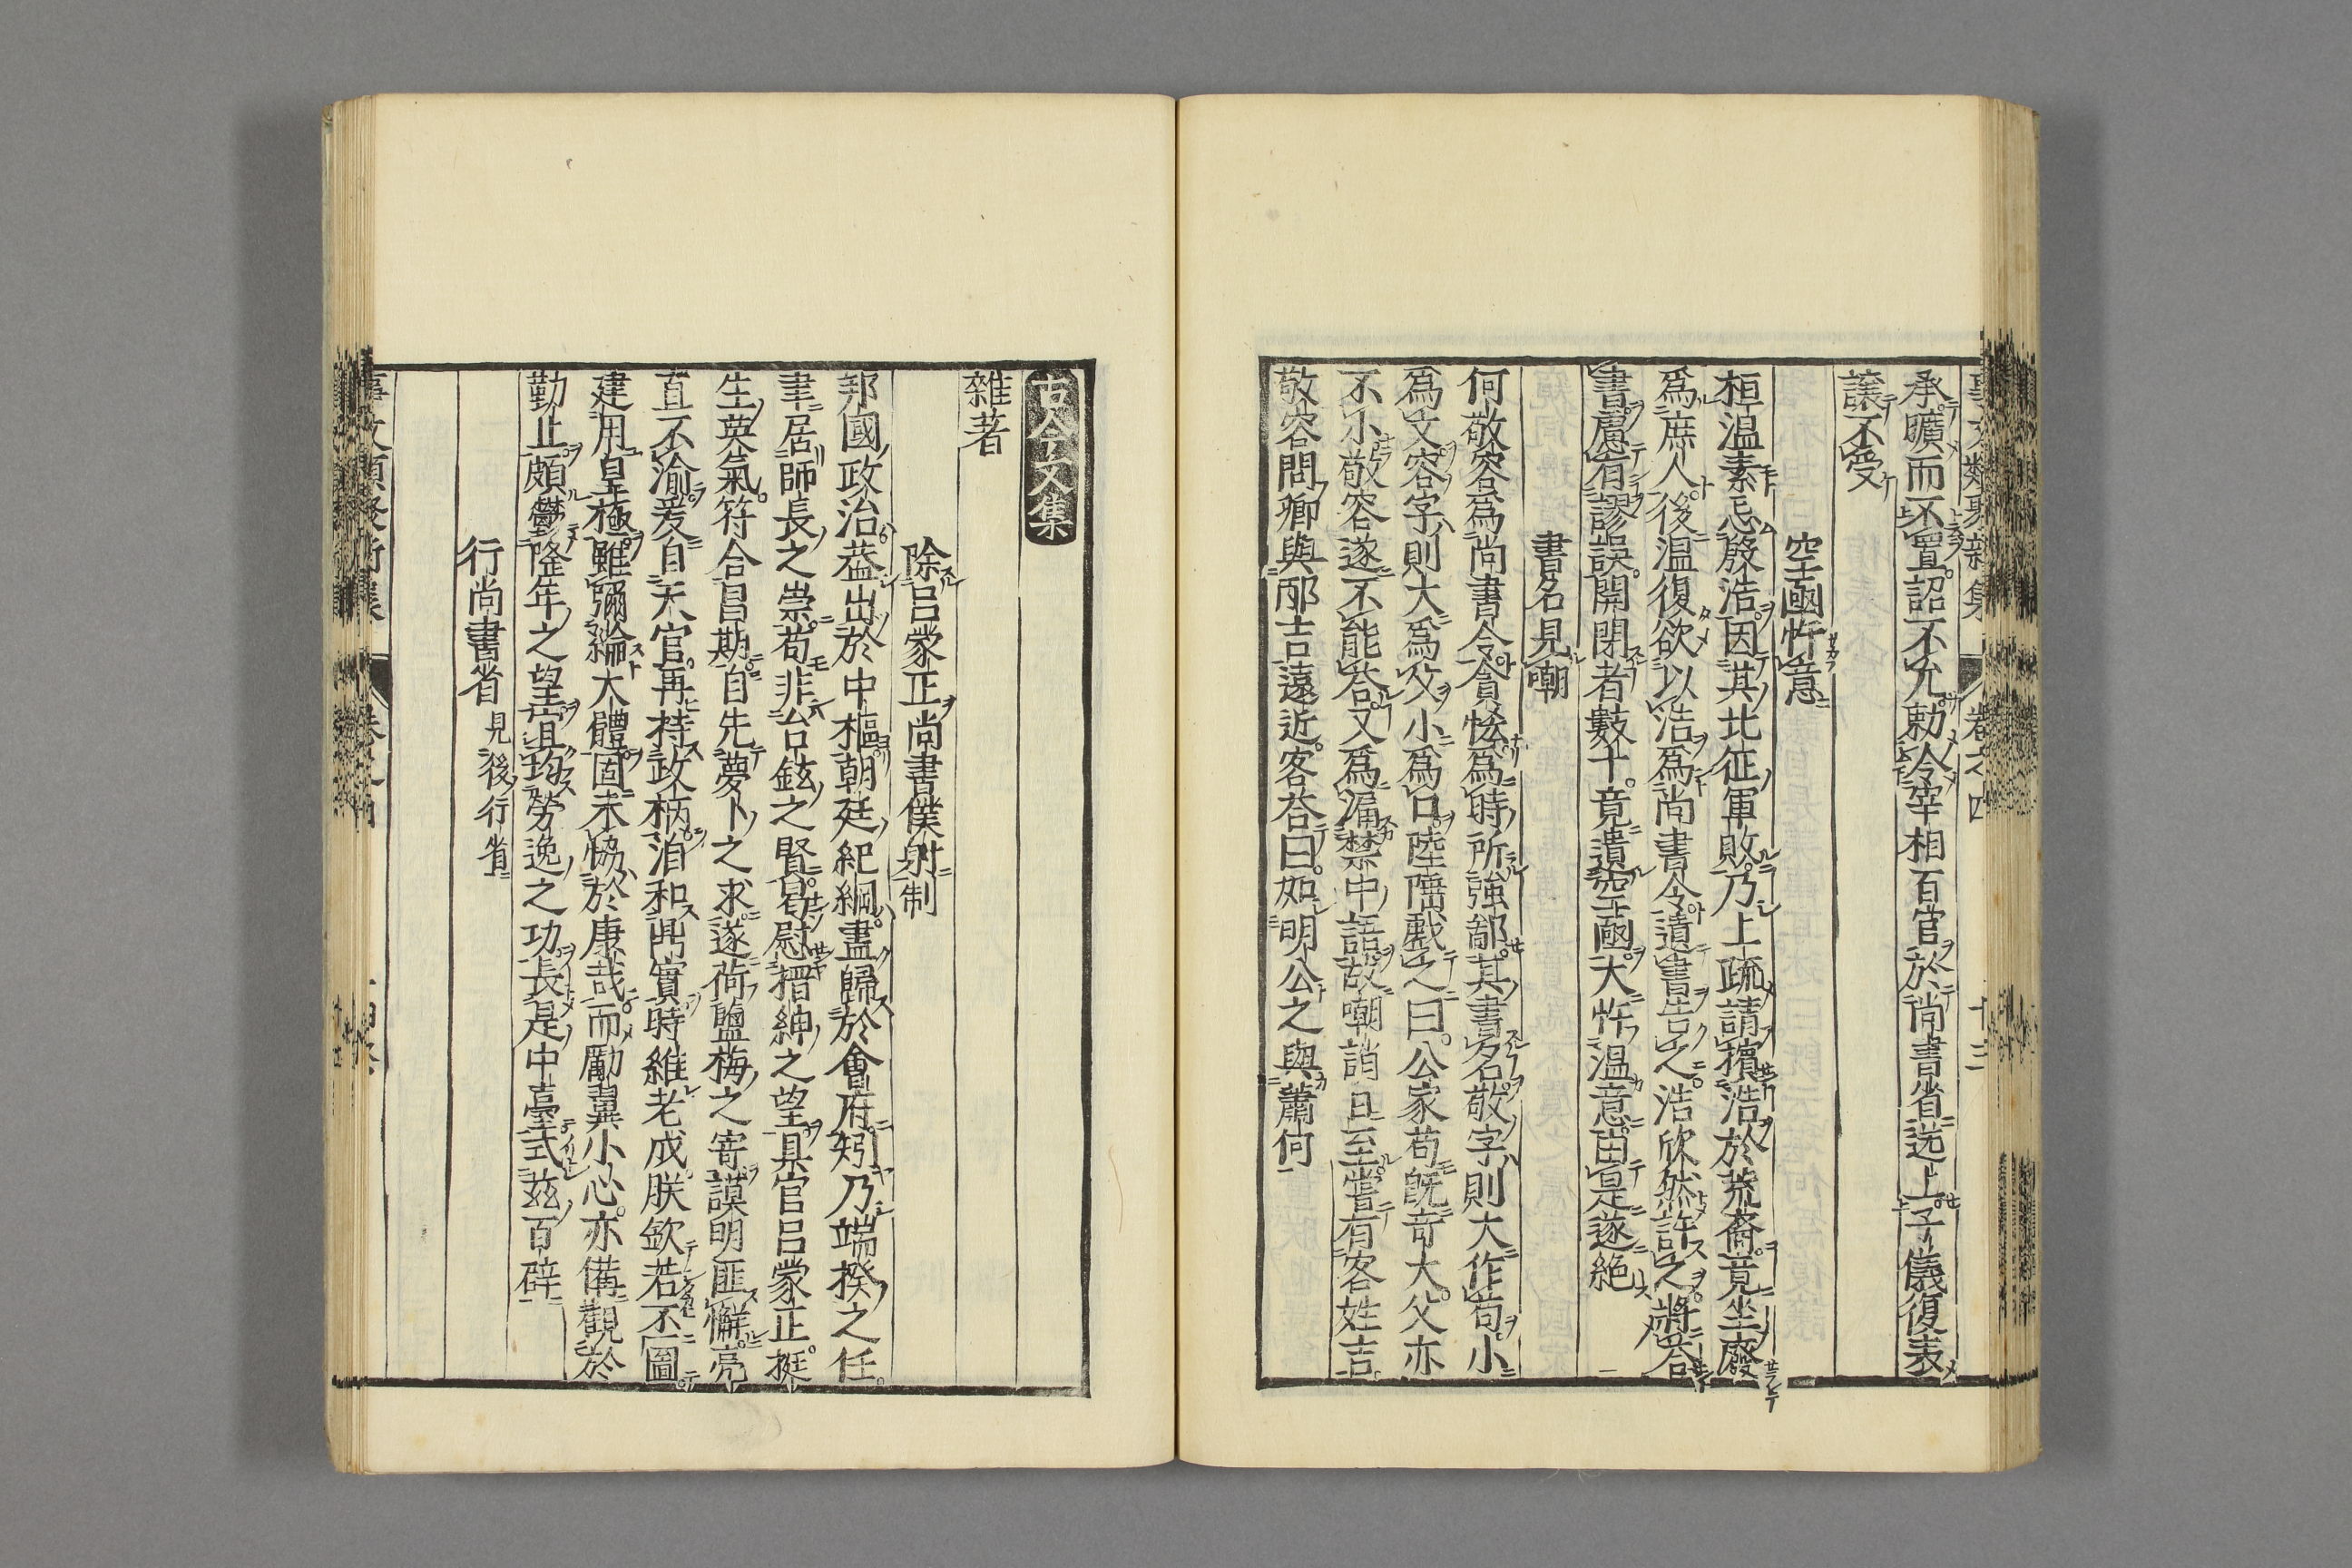 承曠而不置詔不允勅令宰相百官於尚書省送上子儀復表
讓不受
空凾忤意
桓溫素忌殷浩因其北征軍敗乃上疏請擯浩於荒裔竟坐廢
爲庶人後溫復欲以浩爲尚書令遺書告之浩欣然許之將荅
書慮有謬誤開閉者數十竟遺空凾大忤溫意由是遂絕
書名見嘲
何敬容爲尚書令貪恡爲時所強鄙其書名敬字則大作苟小
爲文容字則大爲父小爲口陸倕戲之曰公家苟旣奇大父亦
不小敬容遂不能荅又爲漏禁中語故嘲誚日至嘗有客姓吉
敬容問卿與邴吉遠近客荅曰如明公之與蕭何
古今文集
雜著
除呂蒙正尚書僕射制
邦國政治葢出於中樞朝廷紀綱盡歸於會府矧乃端揆之任
聿居師長之崇苟非台鉉之賢曷慰搢紳之望具官呂蒙正挺
生英氣符合昌期自先夢卜之求遂荷鹽梅之寄謨明匪懈亮
直不渝爰自天官再持政柄洎和鼎實時維老成朕欽若不圖
建用皇極雖彌綸大體固未恊於康哉而勵翼小心亦備觀於
勤止頗鬱隆年之望宜均勞逸之功長是中臺式兹百辟
行尚書省見後行省